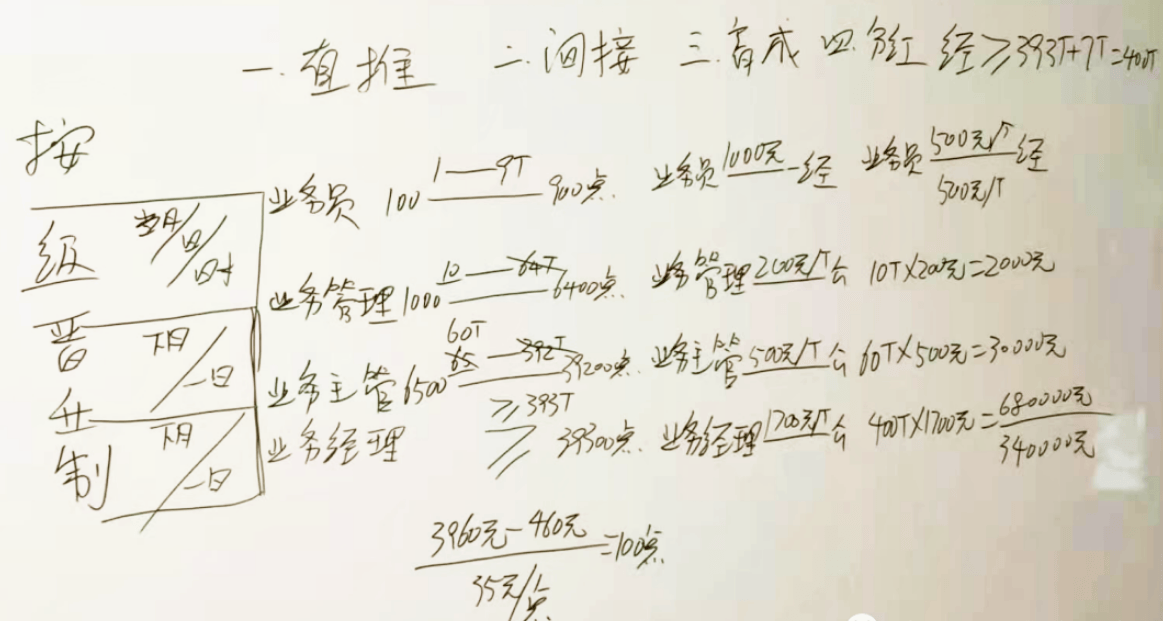 一.直推 二.间接 三.育成 四.分红 经≥393T+7T=400T
按
级
晋
升
制
当月/日/时
下月/一日
下月/一日
业务员 100 1—9T 900点. 业务员 1000元 一经 业务员 500元/T 经 500元/T
业务管理 1000 10—64T 6400点. 业务管理 200元/T 公 10T×200元=2000元
60T
业务主管 6500 65—392T 39200点. 业务主管 500元/T 公 60T×500元=30000元
业务经理 ≥393T ≥ 39300点. 业务经理 1700元/T 公 400T×1700元=680000元 340000元
3960元-460元
35元/点
=100点